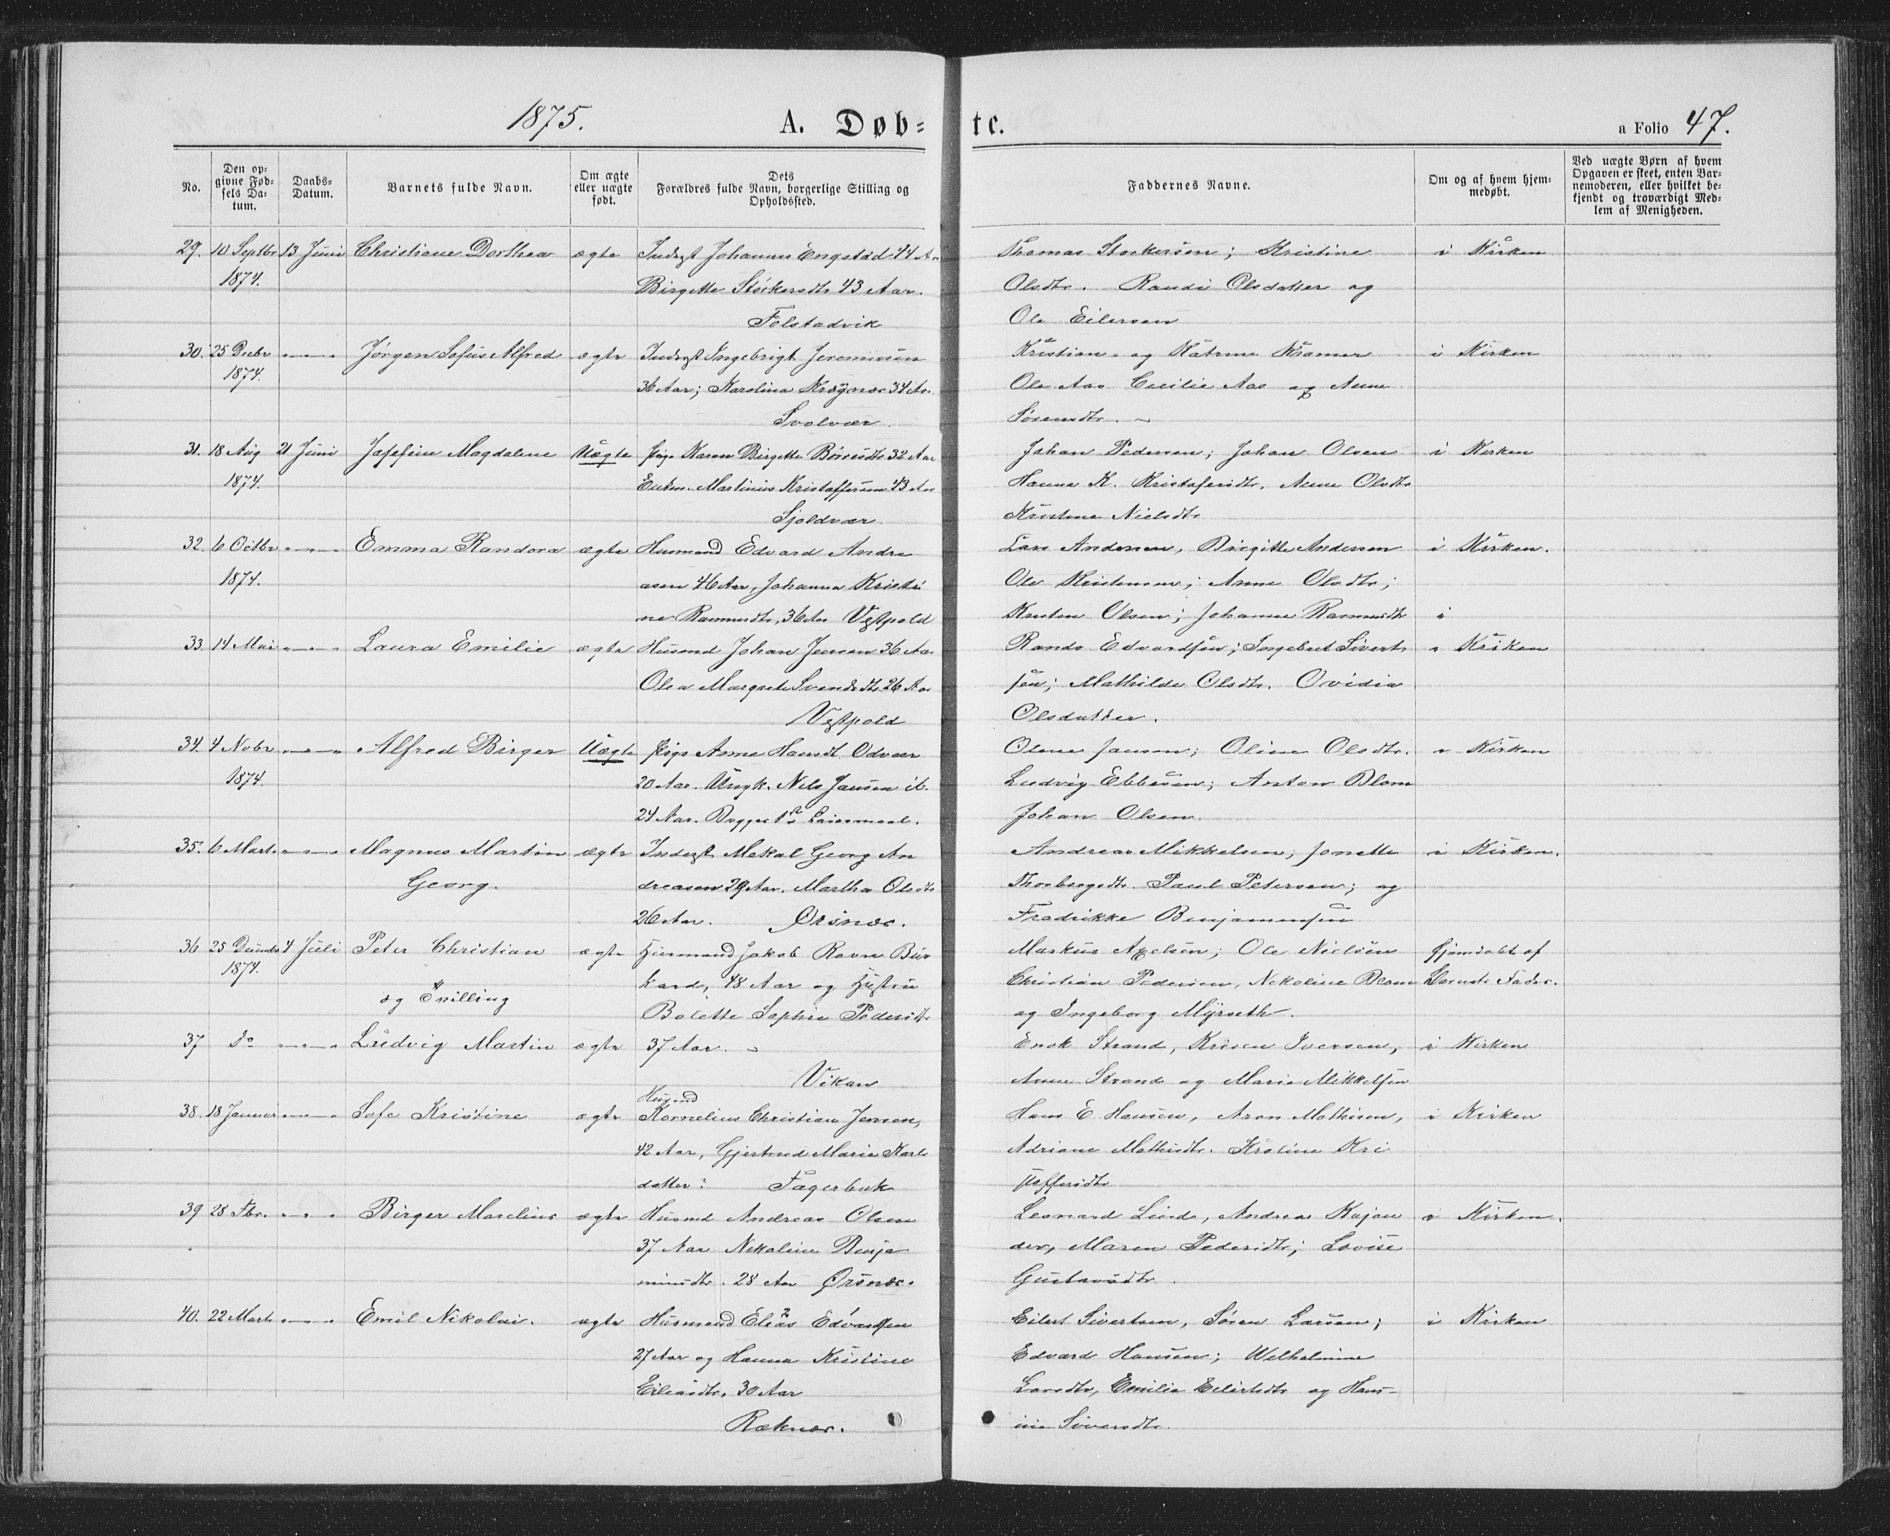 1875.
A. Døb-
te.
a Folio 47.
No.
Den op-
givne Fød-
sels Da-
tum.
Daabs-
Datum.
Barnets fulde Navn.
Om ægte
eller uægte
født.
Dets
Forældres fulde Navn, borgerlige Stilling og
Opholdssted.
Faddernes Navne.
Om og af hvem hjem-
medøbt.
Ved uægte Børn af hvem
Opgaven er skeet, enten Bar-
nemoderen, eller hvilket be-
kjendt og troværdigt Med-
lem af Menigheden.
29. 10 Septbr 13 Juni Christiane Dorthea ægte Inderst Johannes Engstad 44 Aar Thomas Storkersen; Kristine i Kirken
1874. Birgitte Størkersdtr 43 Aar. Olsdtr. Randi Olsdatter og
Følstadvik Ole Eilersen
30. 25 Decbr Jørgen Sofus Alfred ægte Inderst Ingebrigt Jeremiasen Kristian og Katrine Kramer i Kirken
1874. 36 Aar; Karolina 34 Aar Ole Aas Cecilie Aas og Anne
Svolvær. Sørensdtr.
31. 18 Aug 21 Juni Josefine Magdalene Uægte Pige Karen Birgitte 32 Aar Johan Pedersen; Johan Olsen i Kirken
1874. Enkm. Martinus Kristoffersen 43 Aar Hanna K. Kristofersdtr. Anne Olsdtr
Sjoldvær. Kristine Nielsdtr
32. 6 Octbr Emma Randora ægte Husmand Edvard Andre Lars Andersen, Birgitte Andersen i Kirken.
1874. asen 46 Aar, Johanna Kristi Ole Kristensen; Anne Olsdtr;
ne Rasmusdtr, 36 Aar Vestpold Olsen; Johanna Rasmusdtr i
33. 14 Mai Laura Emilie ægte Husmd Johan Jensen 36 Aar Rando Edvardsen; Ingebret Sivert i Kirken
Olea Margrete Svendsdtr 26 Aar sen; Mathilde Olsdtr. Ovidia
Vestpold Olsdatter.
34. 4 Nobr Alfred Birger Uægte Pige Anne Hansdt Odvær Olene Jansen; Oline Olsdtr. i Kirken
1874. 20 Aar. Ungk. Nils Jansen ib. Ludvig Ebbesen; Anton Blom
24 Aar. Begges 1ste Leiermaal. Johan Olsen.
35. 6 Mart. Magnus Martin ægte Inderst Mekal Georg An Andreas Mikkelsen; Jonette i Kirken.
Georg. dreasen 29 Aar. Martha Olsdtr Thorbergsdtr. Paul Petersen; og
26 Aar. Ørsnæs. Fredrikke Benjaminsen
36 25 Decembr 4 Juli Peter Christian ægte Husmand Jakob Ravn Bur Markus Axelsen; Ole Nielsen Hjemdøbt af
1874. og Tvilling kard, 48 Aar og Hustru Christian Pedersen, Nekoline Blom Barnets Fader.
Bolette Sophie Pedersdtr og Ingeborg Myrseth.
37 Do Ludvig Martin ægte 37 Aar. Enok Strand, Iversen, i Kirken
Vikan Anne Strand og Marie Mikkelsen
38. 18 Januar Sofe Kristine ægte Husmd Kornelius Christian Jensen, Hans E Hansen, Aron Mathisen, i Kirken
42 Aar, Gjertrud Marie Karls Adriane Mathisdtr. Karoline Kri
datter: Fagerbuk stoffersdtr
39 28 Fbr. Birger Marelius ægte Husmd Andreas Olsen Leonard Lind, Andrea Kajan i Kirken.
37 Aar Nekoline Benja der, Maren Pedersdtr; Lovise
minsdtr. 28 Aar Ørsnæs. Gustavsdtr.
40. 22 Mart. Emil Nikolai. ægte Husmand Elias Edvardsen Eilert Sivertsen, Søren Larsen; i Kirken
27 Aar og Hanna Kristine Edvard Hansen; Wilhelmine
Eliasdtr. 30 Aar Larsdtr, Emilie Eilertsdtr og Han-
Reknes. ine Siversdtr